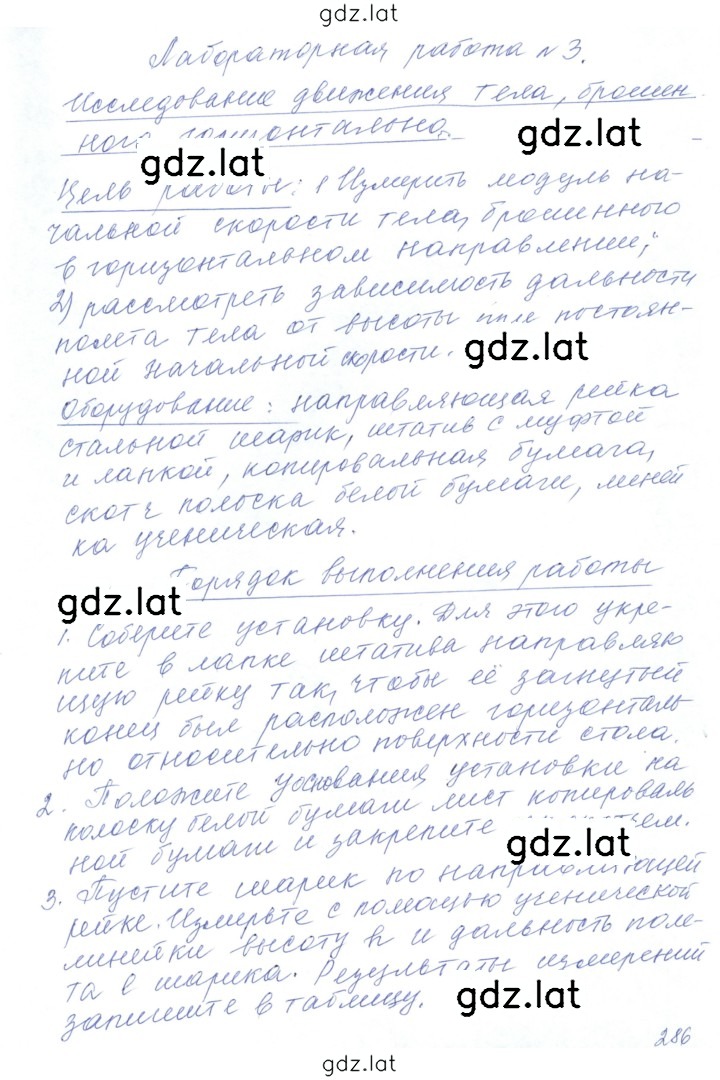 gdz.lat
Лабораторная работа №3.
Исследование движения тела, брошен-
ного горизонтально.
gdz.lat
gdz.lat
Цель работы: 1 Измерить модуль на-
чальной скорости тела, брошенного
в горизонтальном направлении;
2) рассмотреть зависимость дальности
полета тела от высоты при постоян-
ной начальной скорости.
gdz.lat
Оборудование: направляющая рейка
стальной шарик, штатив с муфтой
и лапкой, копировальная бумага,
скотч полоска белой бумаги, линей
ка ученическая.
Порядок выполнения работы
gdz.lat
1. Соберите установку. Для этого укре-
пите в лапке штатива направляю
щую рейку так, чтобы её загнутый
конец был расположен горизонталь
но относительно поверхности стола.
2. Положите у основания установки на
полоску белой бумаги лист копироваль
ной бумаги и закрепите
gdz.lat
3. Пустите шарик по направляющей
рейке. Измерьте с помощью ученической
линейки высоту h и дальность поле-
та l шарика. Результаты измерений
запишите в таблицу.
gdz.lat
286
gdz.lat